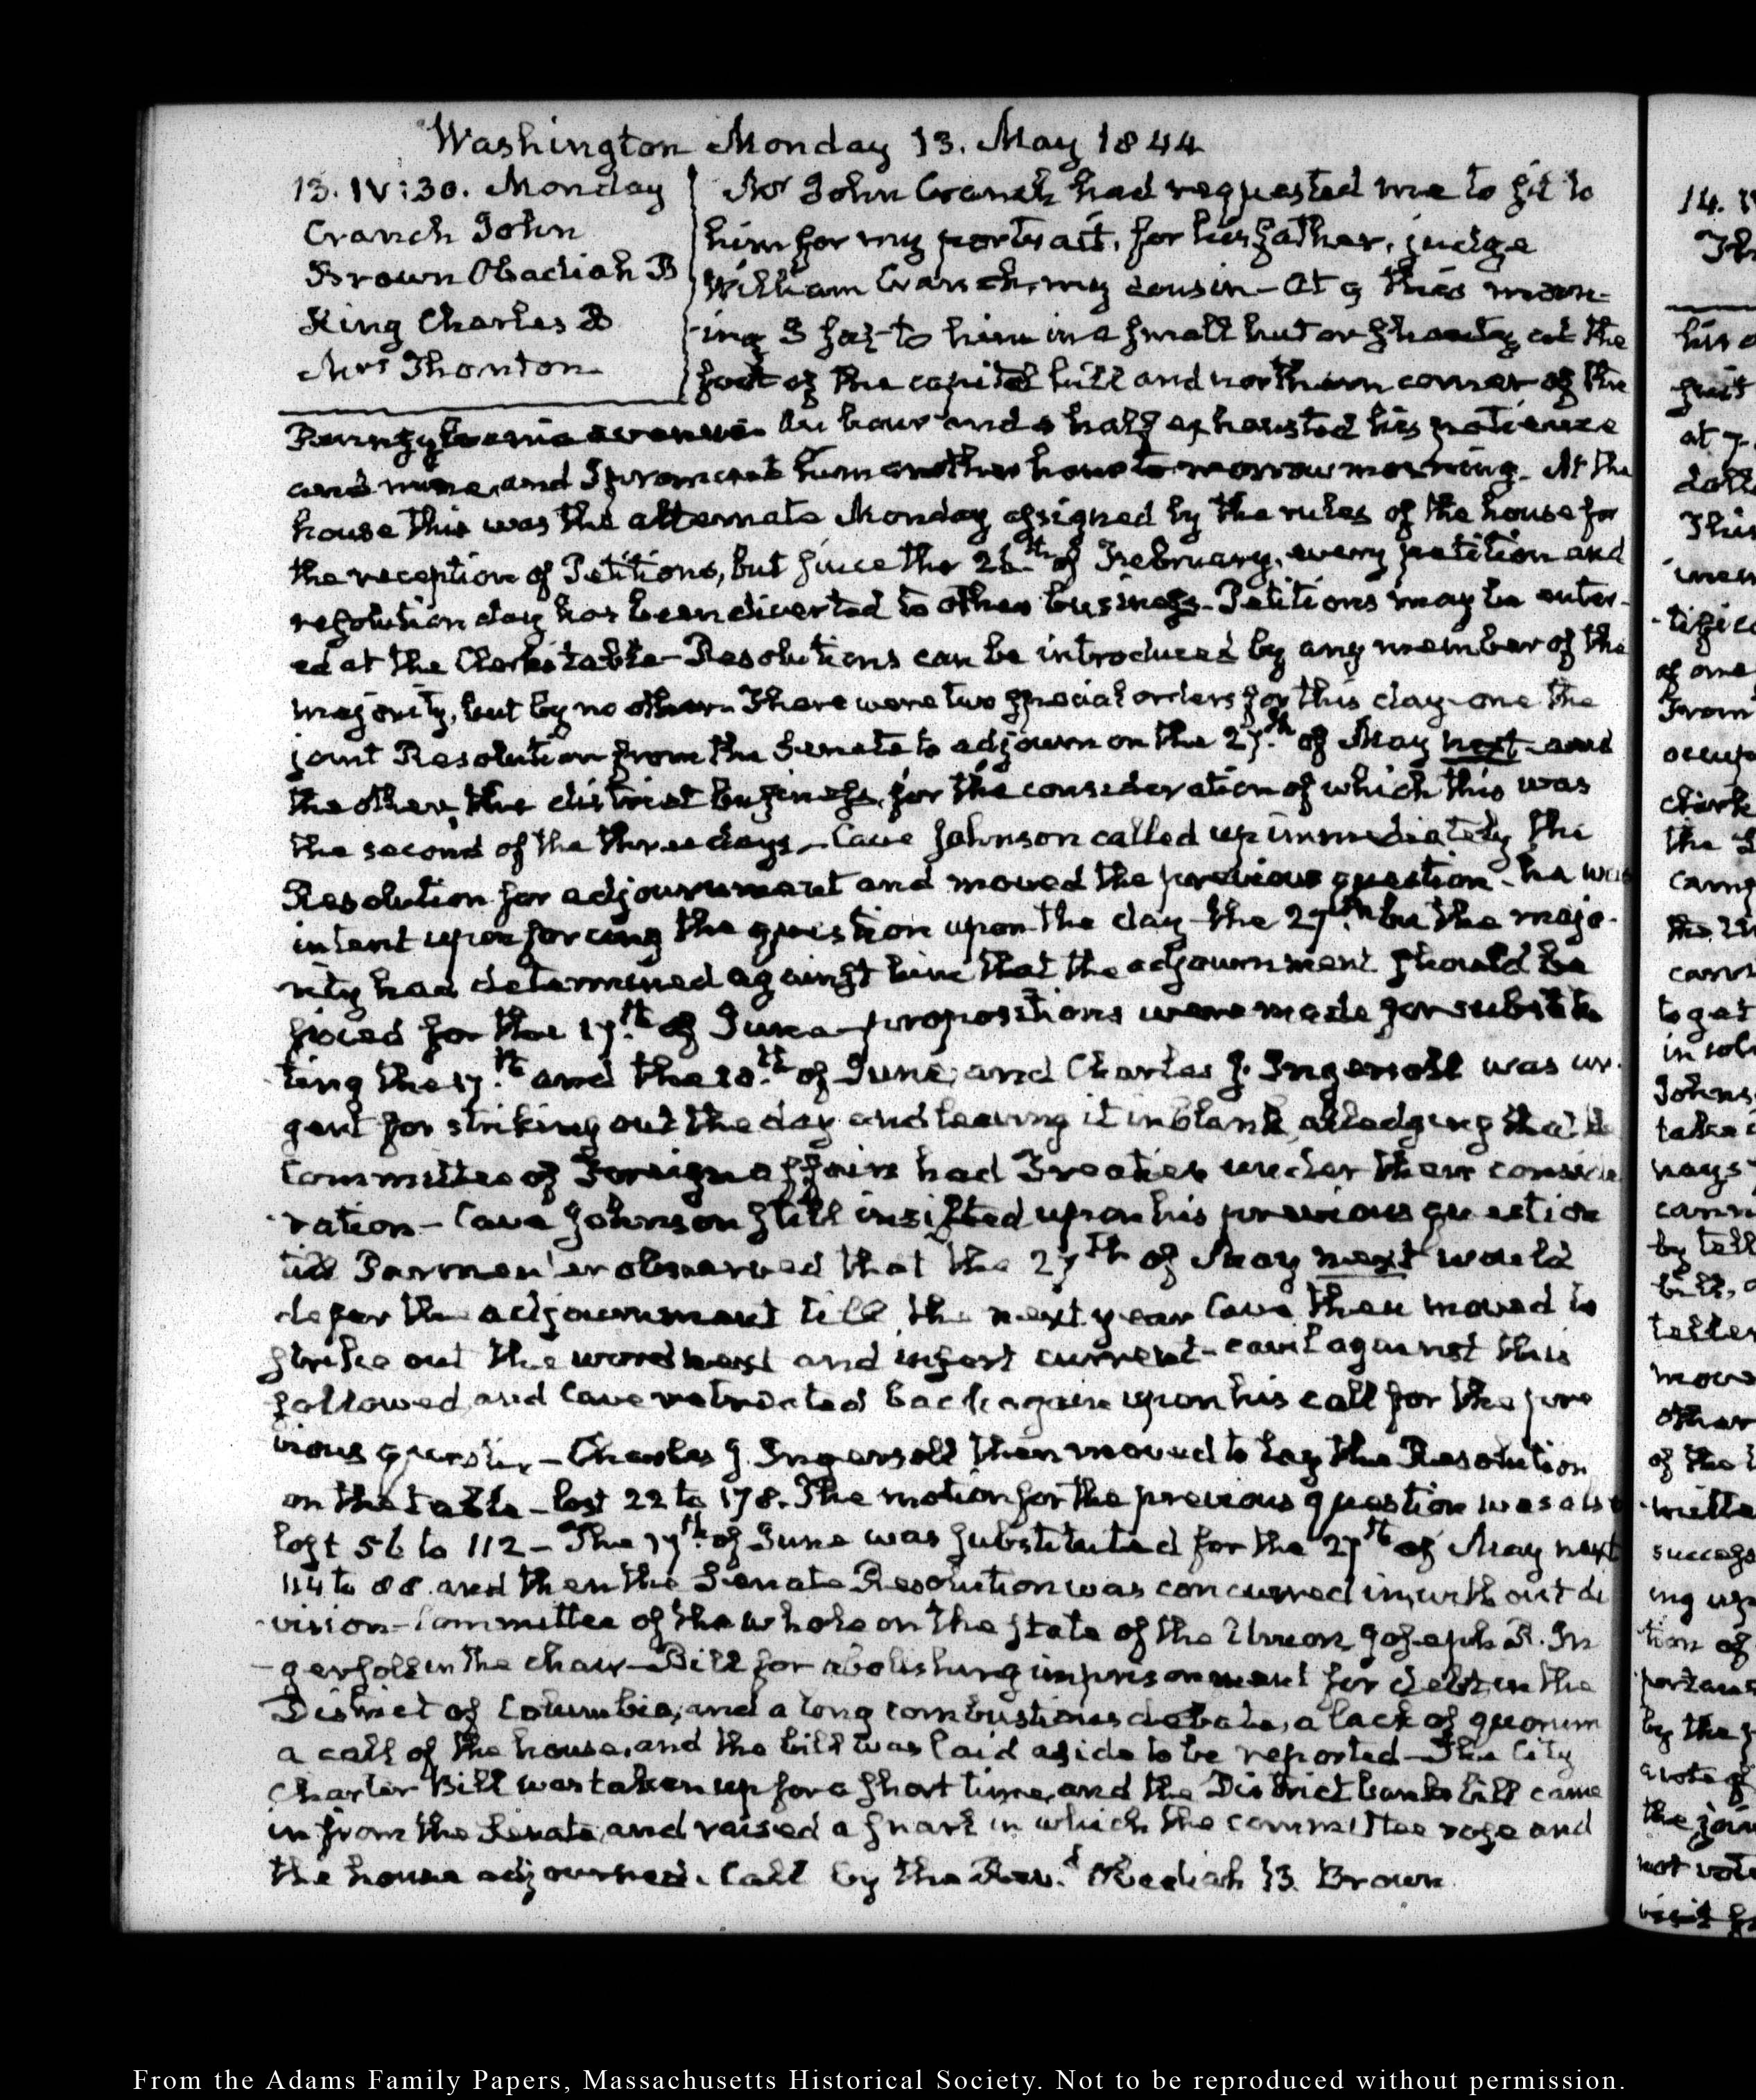 Washington Monday 13. May 1844
13. IV:30. Monday
Cranch John
Brown Obadiah B
King Charles B
Mrs Thornton
Mr John Cranch had requested me to sit to
him for my portrait, for his father, judge
William Cranch, my cousin – At 9 this morn-
ing I sat to him in a small hut or shanty at the
foot of the capitol hill and northern corner of the
Pennsylvania avenue. An hour and a half exhausted his patience
and mine, and I promised him another hour to-morrow morning. At the
house this was the alternate Monday assigned by the rules of the house for
the reception of Petitions, but since the 26.th of February, every petition and
resolution day has been diverted to other business – Petitions may be enter-
ed at the Clerks table – Resolutions can be introduced by any member of the
majority, but by no other. There were two special orders for this day – one the
joint Resolution from the Senate to adjourn on the 27.th of May next – and
the other, the district business, for the consideration of which this was
the second of the three days – Cave Johnson called up immediately the
Resolution for adjournment and moved the previous question – he was
intent upon forcing the question upon the day the 27.th but the majo-
rity had determined against him that the adjournment should be
fixed for the 17.th of June – propositions were made for substitu
ting the 17.th and the 10.th of June, and Charles J. Ingersoll was ur-
gent for striking out the day and leaving it in blank, alledging that the
Committee of Foreign affairs had Treaties under their conside
ration – Cave Johnson still insisted upon his previous question
till Parmenter observed that the 27th of May next would
defer the adjournment till the next year Cave then moved to
strike out the word next and insert current – cavil against this
followed and Cave retreated back again upon his call for the pre
vious question – Charles J. Ingersoll then moved to lay the Resolution
on the table – lost 22 to 178. The motion for the previous question was also
lost 56 to 112 – The 17.th of June was substituted for the 27th of May next
114 to 88. and then the Senate Resolution was concurred in, without di
vision – Committee of the whole on the state of the Union Joseph R. In
gersoll in the chair – Bill for abolishing imprisonment for debt in the
District of Columbia, and a long combustious debate, a lack of quorum
a call of the house, and the bill was laid aside to be reported – The City
Charter Bill was taken up for a short time, and the District banks bill came
in from the Senate, and raised a snarl in which the committee rose and
the house adjourned. Call by the Rev.d Obediah B. Brown.
From the Adams Family Papers, Massachusetts Historical Society. Not to be reproduced without permission.